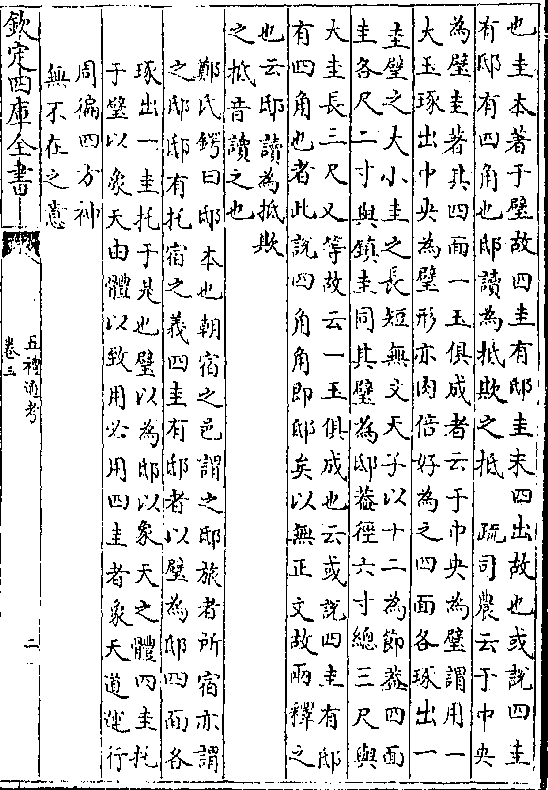 也圭本著于璧故四圭有邸圭末四出故也或說四圭
有邸有四角也邸讀為抵欺之抵　疏司農云于中央
為璧圭著其四面一玉俱成者云于中央為璧謂用一
大玉琢出中央為璧形亦肉倍好為之四面各琢出一
圭璧之大小圭之長短無文天子以十二為節葢四面
圭各尺二寸與鎮圭同其璧為邸葢徑六寸總三尺與
大圭長三尺又等故云一玉俱成也云或說四圭有邸
有四角也者此說四角角即邸矣以無正文故兩釋之
也云邸讀為抵欺
之抵音讀之也
鄭氏鍔曰邸本也朝宿之邑謂之邸旅者所宿亦謂
之邸邸有托宿之義四圭有邸者以璧為邸四面各
琢出一圭托于是也璧以為邸以象天之體四圭托
于璧以象天由體以致用必用四圭者象天道運行
周徧四方神
無不在之意
欽定四庫全書
五禮通考
卷三
二